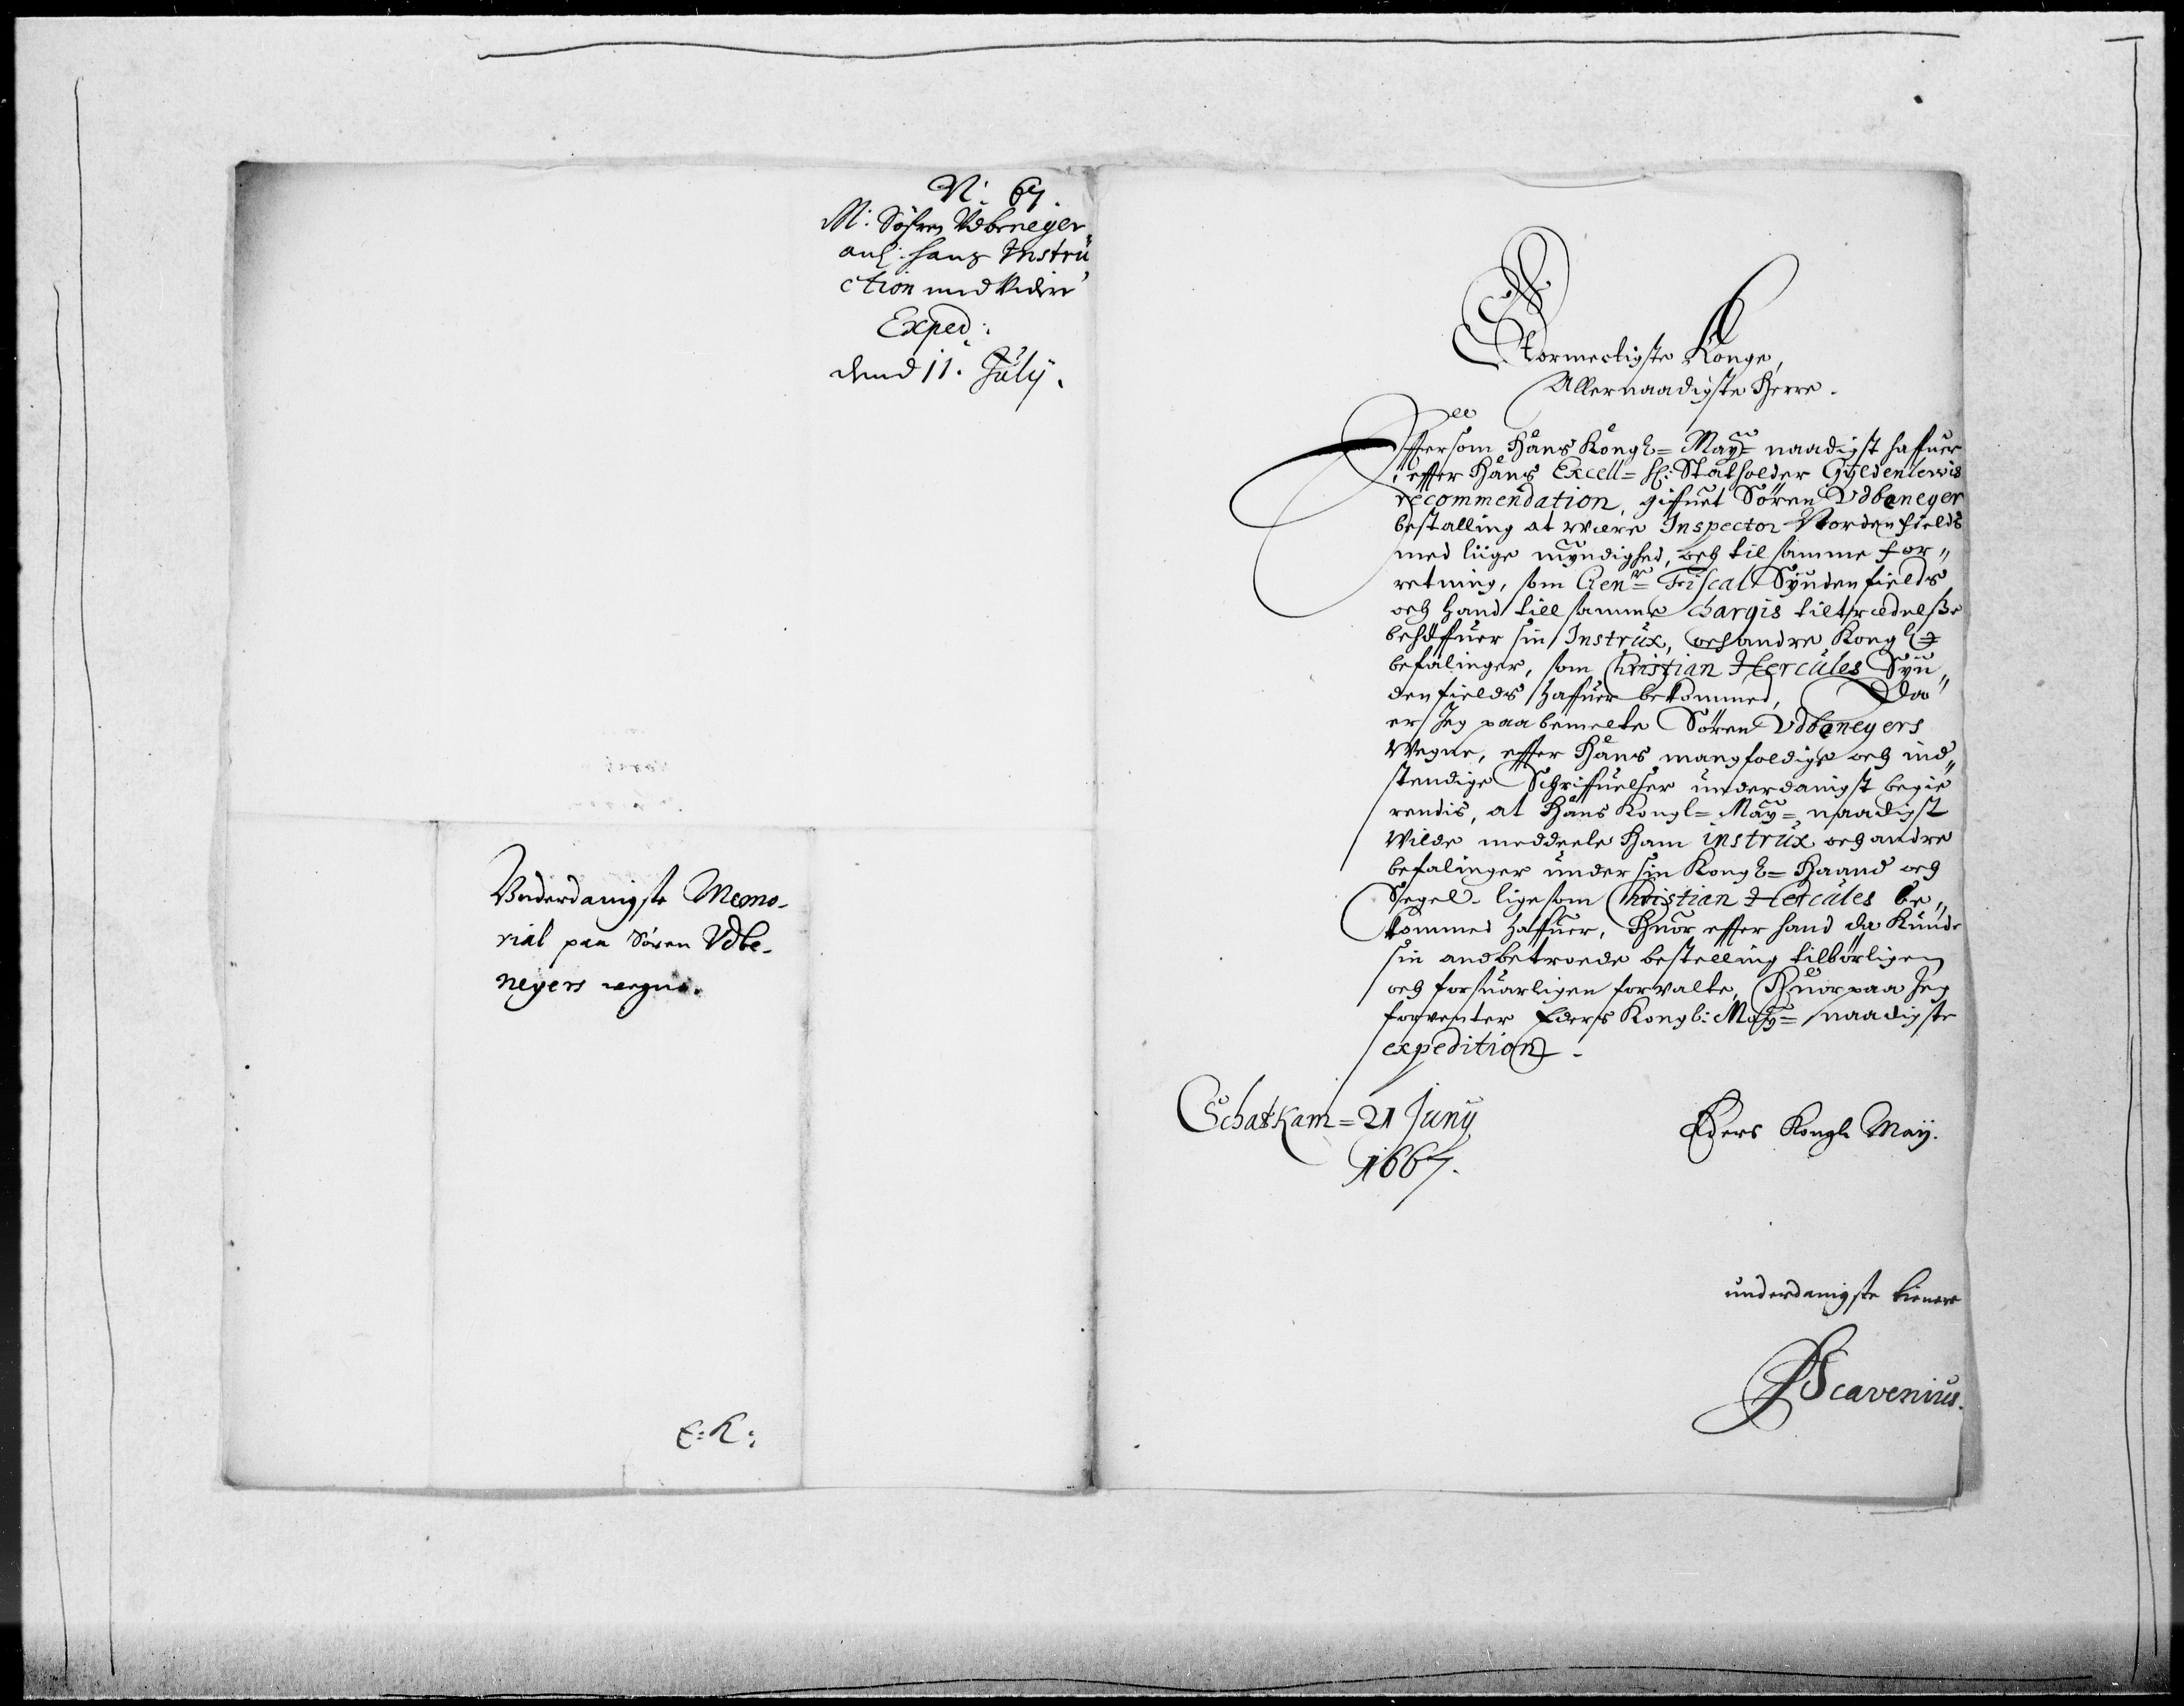 N: 67.
M: Søfren Udbeneyer
anl: hans Instru
ction med Videre
Exped:
dend 11. July.
Underdanigste Memo-
rial paa Søren Udbe-
neyers vegne.
E: K:
Stormectigste Konge,
Allernaadigste Herre.
Effter som Hans Kongl= May= naadigst haffuer
effter Hans Excell= H: Statholder Gyldenlewis
recommendation, giffuet Søren Udbeneyer
bestalling at være Inspector Nordenfields
med liige myndighed, och til samme for„
retning, som Gen= Fiscal Syndenfields
och hand till samme chargis tiltrædelsse
behøffuer sin Instrux, och andre Kongl=
befalinger, som Christian Hercules Syn„
denfields haffuer bekommed, Da
er Jeg paa bemelte Søren Udbeneyers
Wegne, effter Hans mangfoldige och ind„
stendige Schriffuelser underdanigst begie
rendis, at Hans Kongl= May= naadigst
Wilde meddeele Ham instrux och andre
befalinger under sin Kongl= Haand och
Segel ligesom Christian Hercules be„
kommed haffuer, Huor effter hand da kunde
sin andbetroede bestelling tilbørligen
och forsuarligen forvalte, Huor paa Jeg
forventer Eders Kongl: May= naadigste
expedition.
Schatkam= 21 Juny
1667.
Eders Kongl May.
underdanigste tienere
PScavenius.